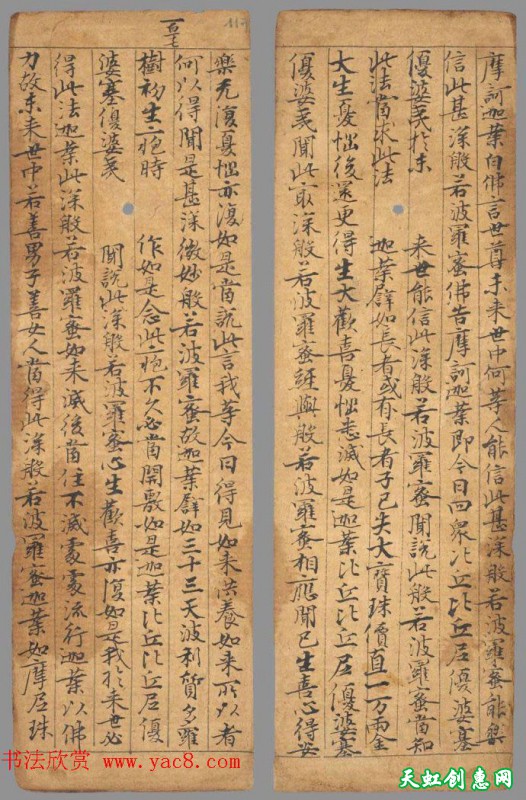 摩訶迦葉白佛言世尊未来世中何等人能信此甚深般若波羅蜜能樂
信此甚深般若波羅蜜佛告摩訶迦葉即今日四衆比丘比丘尼優婆塞
優婆夷於未 来世能信此深般若波羅蜜聞說此般若波羅蜜當知
此法當求此法 迦葉譬如長者或有長者子已失大寶珠價直一万兩金
大生憂惱後還更得生大歡喜憂惱悉滅如是迦葉比丘比丘尼優婆塞
優婆夷聞此最深般若波羅蜜經與般若波羅蜜相應聞已生喜心得安
樂无復憂惱亦復如是當說此言我等今日得見如来供養如来所以者
何以得聞是甚深微妙般若波羅蜜故迦葉譬如三十三天波利質多羅
樹初生疱時 作如是念此疱不久必當開敷如是迦葉比丘比丘尼優
婆塞優婆夷 聞說此深般若波羅蜜心生歡喜亦復如是我於来世必
得此法迦葉此深般若波羅蜜如来滅後當住不滅處處流行迦葉以佛
力故未来世中若善男子善女人當得此深般若波羅蜜迦葉如摩尼珠
书法欣赏
www.yac8.com
天虹创惠网